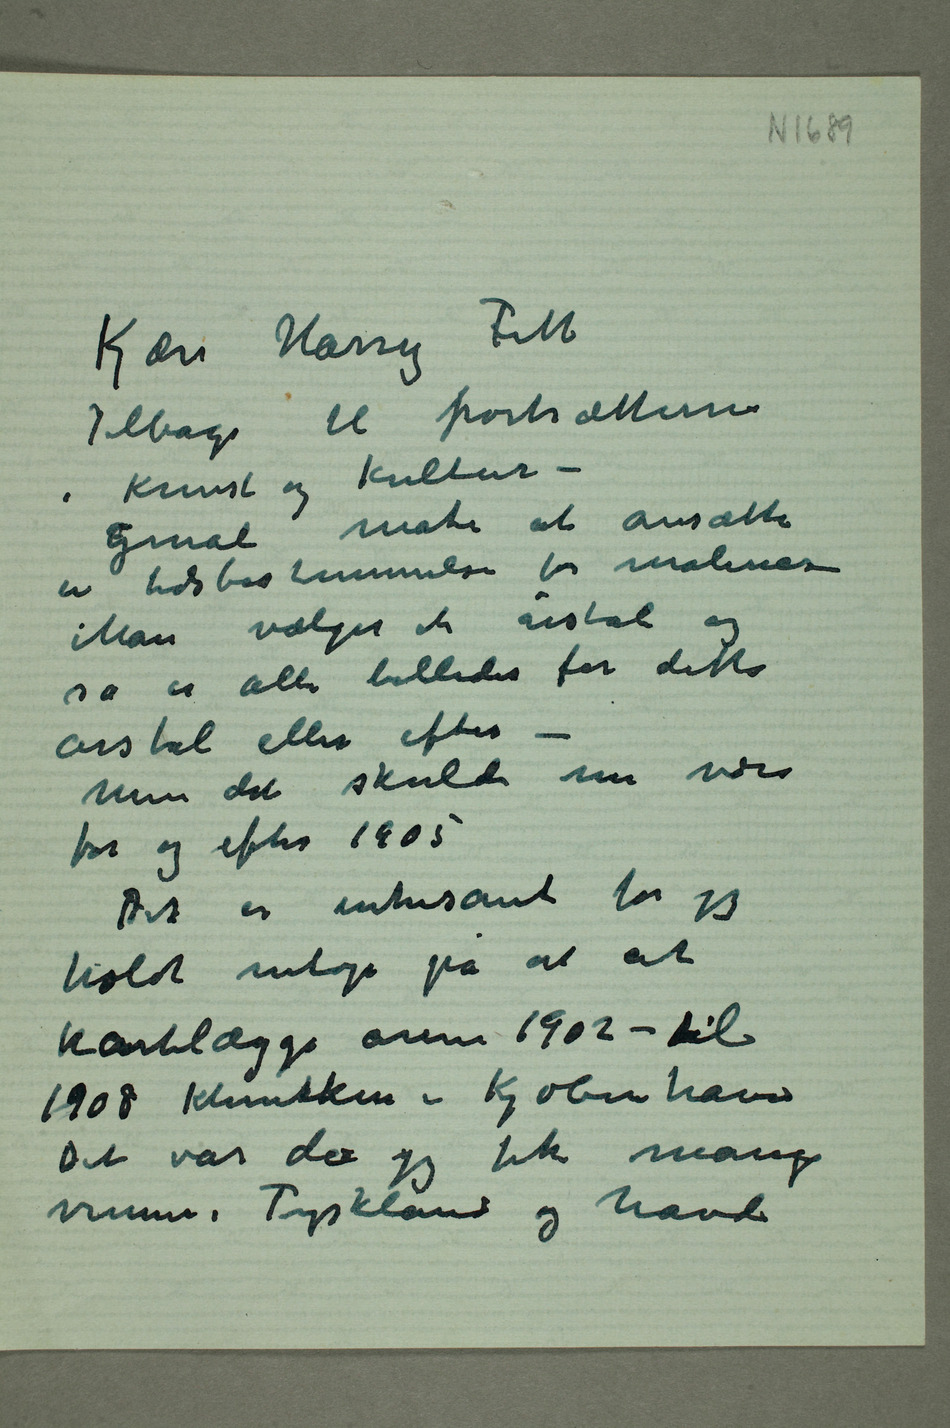 N1689
Kjære Harry Fett
Tilbage til portrætterne
i Kunst og Kultur –
Gjenial måte at ansætte
en tidsbestemmelse for malerier
Man vælger et årstal og
så er alle billeder før dette
årstal eller efter –
Men det skulde nu være
før og efter 1905
Det er interesant for jeg
holdt netop på at at
kartlægge årene 1902 – til
1908 Klinikken i Kjøbenhavn
Det var da jeg fik mange
venner i Tyskland og havde